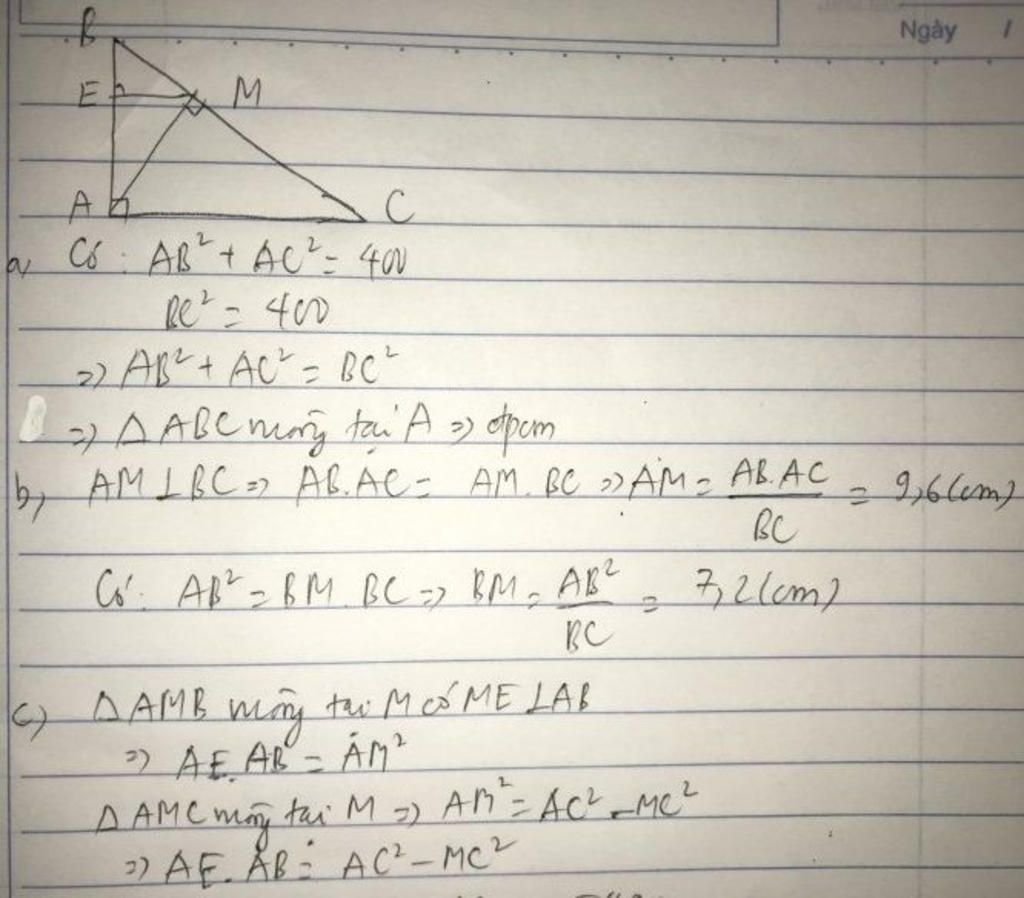 Ngày /
B
E M
A C
a, Có : AB² + AC² = 400
BC² = 400
=> AB² + AC² = BC²
=> Δ ABC vuông tại A => đpcm
b, AM ⊥ BC => AB.AC = AM.BC => AM = AB.AC / BC = 9,6 (cm)
Có: AB² = BM.BC => BM = AB² / BC = 7,2 (cm)
c) Δ AMB vuông tại M có ME ⊥ AB
=> AE.AB = AM²
Δ AMC vuông tại M => AM² = AC² - MC²
=> AE.AB = AC² - MC²